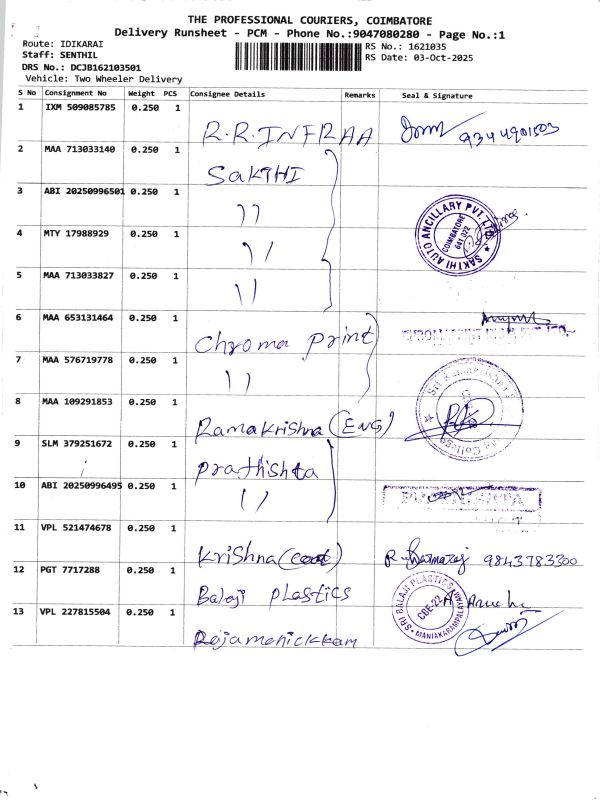 THE PROFESSIONAL COURIERS, COIMBATORE
Delivery Runsheet - PCM - Phone No.:9047080280 - Page No.:1
Route: IDIKARAI
RS No.: 1621035
Staff: SENTHIL
RS Date: 03-Oct-2025
DRS No.: DCJB162103501
Vehicle: Two Wheeler Delivery
S No Consignment No Weight PCS Consignee Details Remarks Seal & Signature
1 IXM 509085785 0.250 1
R.R.INFRAA 9344901503
2 MAA 713033140 0.250 1
SAKTHI
3 ABI 20250996501 0.250 1
"
SAKTHI AUTO ANCILLARY PVT. LTD. COIMBATORE 641 022
4 MTY 17988929 0.250 1
"
5 MAA 713033827 0.250 1
"
6 MAA 653131464 0.250 1
Chroma print
7 MAA 576719778 0.250 1
"
8 MAA 109291853 0.250 1
Ramakrishna (ENG)
9 SLM 379251672 0.250 1
Prathishta
10 ABI 20250996495 0.250 1
"
11 VPL 521474678 0.250 1
Krishna 9843783300
12 PGT 7717288 0.250 1
Balaji plastics
SRI BALAJI PLASTICS CBE-22
13 VPL 227815504 0.250 1
Rajamanickkam